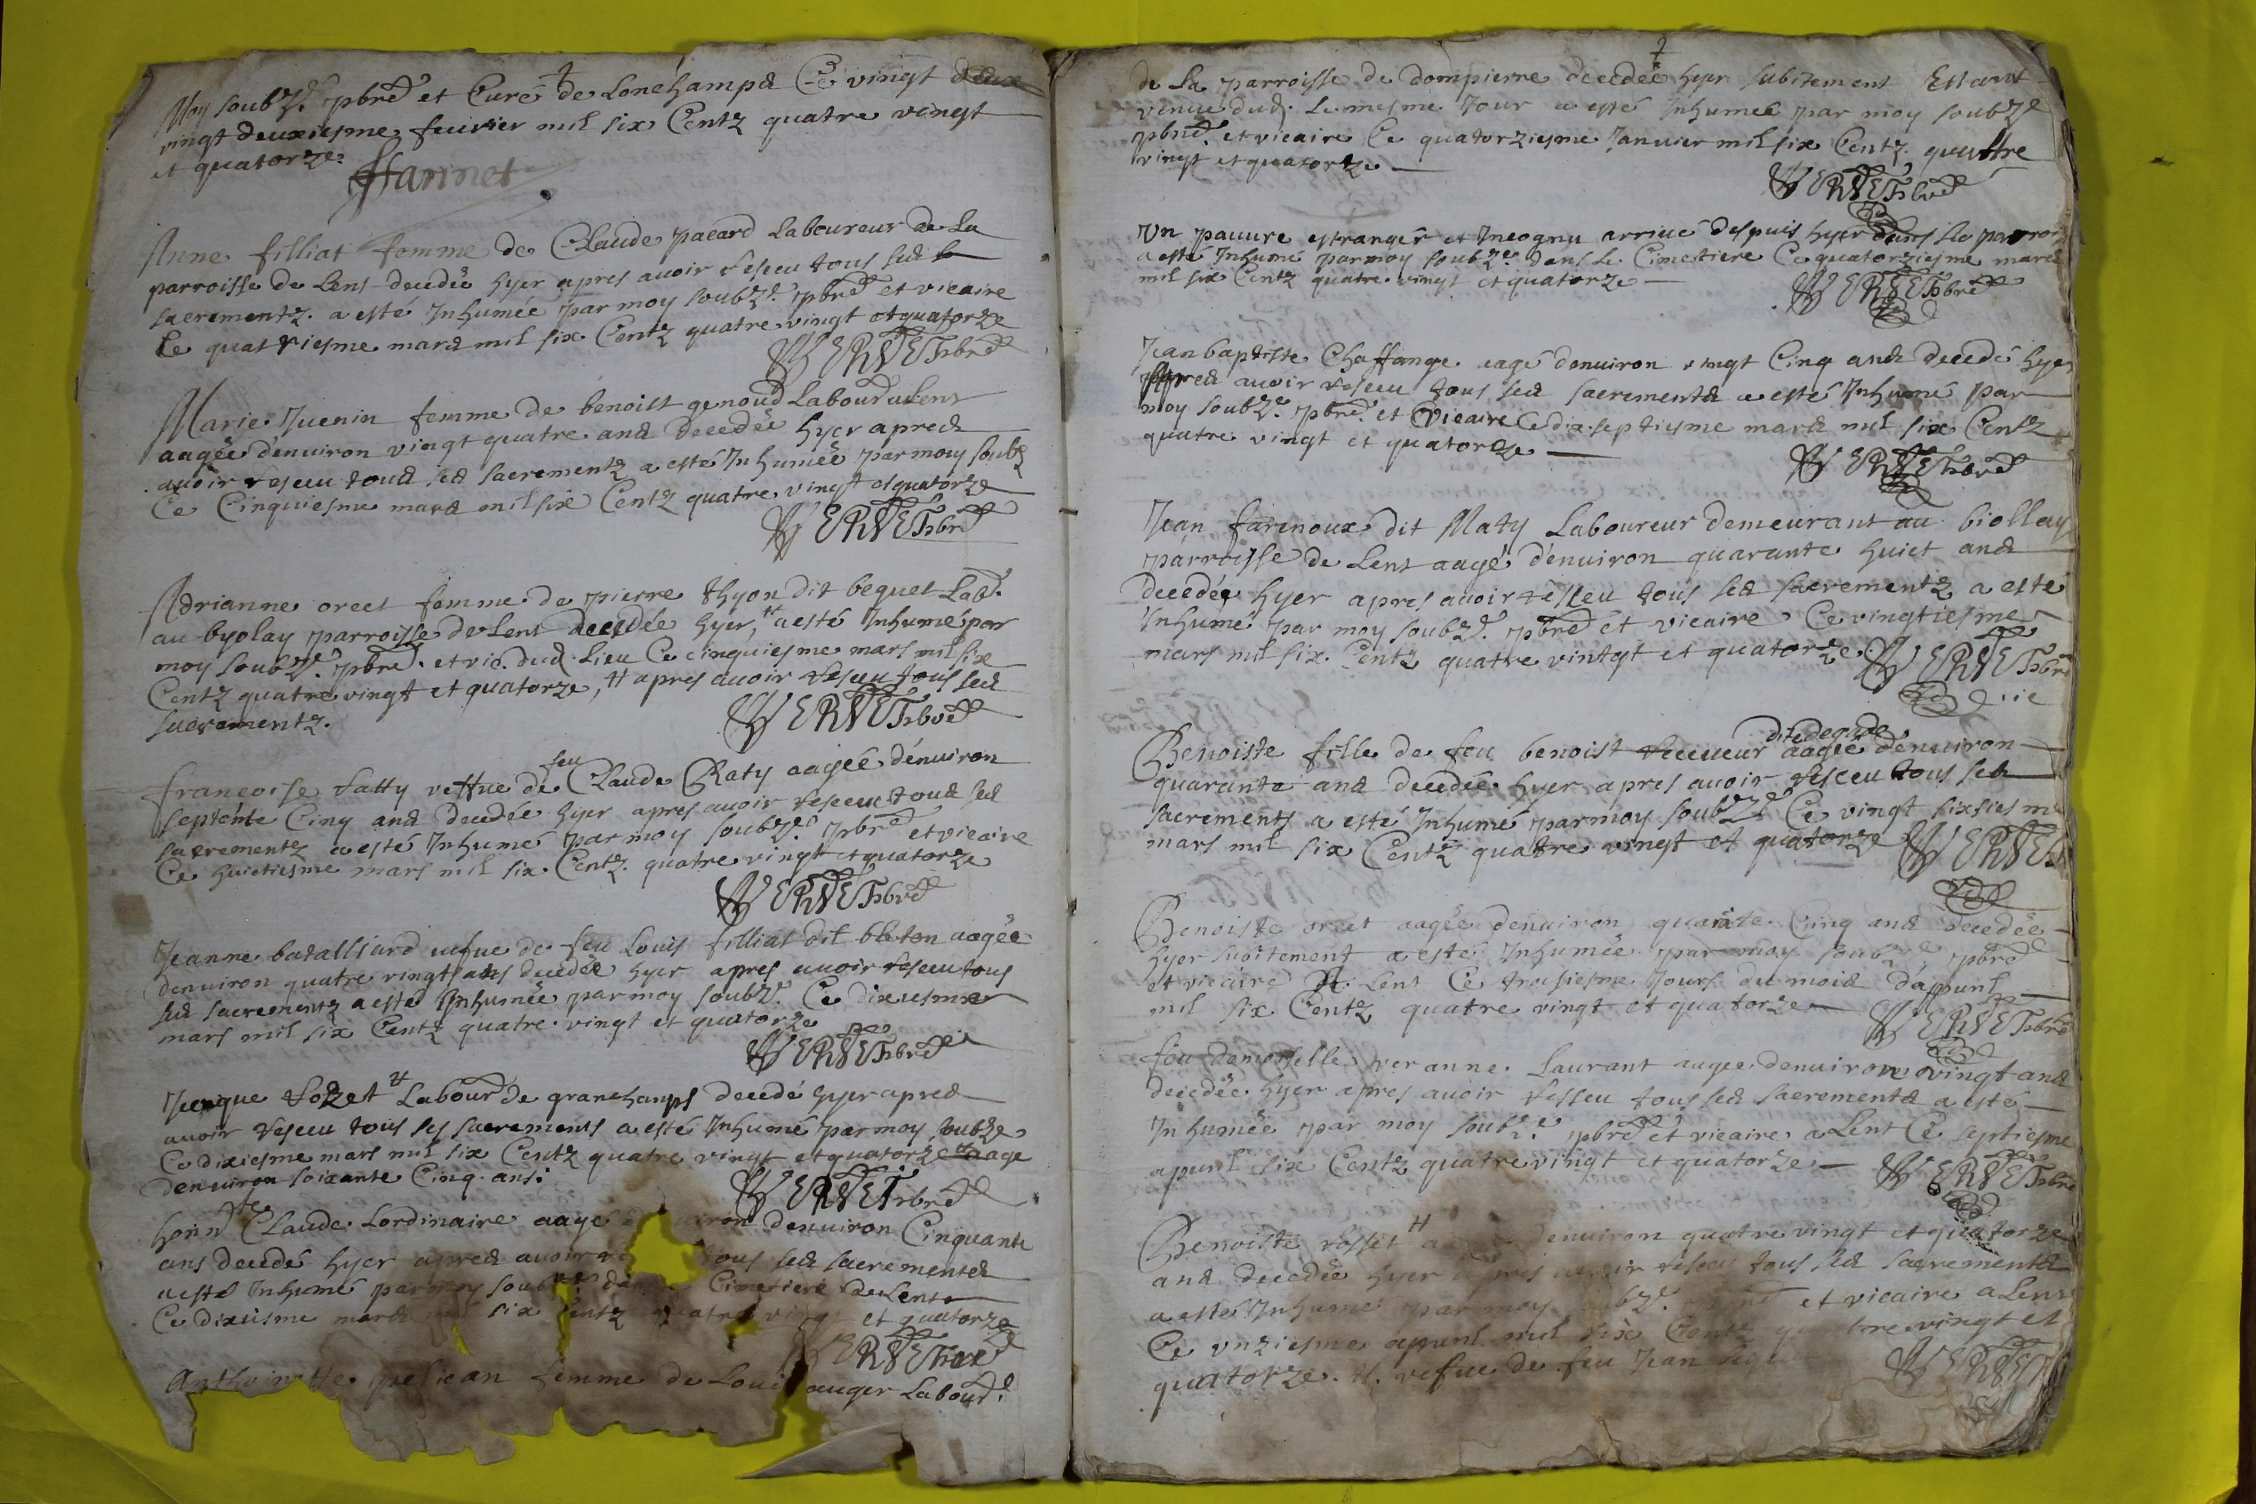 Moy soubz.e pbre et Curé de Lonchampd Ce vingt
vingt deuxiesme feuvrier mil six Centz quatre vingt
et quatorze.
ffarinet
Anne filliat femme de Claude pacard Laboureur de La
parroisse de Lent decedée hyer apres avoir resceu tous sed
sacrementz. a esté Inhumée par moy soubz.e pbre et vicaire
Ce quatriesme mard mil six Centz quatre vingt et quatorze
VERVET pbre
Marie Juenin femme de benoist genoud Labour a Lent
aagée d'enuiron vingt quatre and decedée hyer apred
auoir resceu toud sed sacrementz a esté Inhumée par moy soubz
Ce Cinquiesme mard mil six Centz quatre vingt et quatorze
VERVET pbre
Adrianne orcet femme de pierre thyon dit bequet Lab.r
au byolay parroisse de Lent decedée hyer, # a esté Inhumé par
moy soubz.e pbre. et vic. dud. Lieu Ce cinquiesme mars mil six
Centz quatre vingt et quatorze, # apres auoir resceu tous sed
sacrementz.
VERVET pbre
francoise ratty veffue de feu Claude Raty aagée d'enuiron
septente Cinq and decedée hyer apres auoir resceu toud sed
sacrementz a esté Inhumé par moy soubz.e pbre et vicaire
Ce huictiesme mars mil six Centz. quatre vingt et quatorze
VERVET pbre
Jeanne batalliard vefue de feu Louis filliat dit bleton aagée
denuiron quatre vingt ans decedée hyer apres auoir resceu tous
sed sacrementz a esté Inhumée par moy soubz.e Ce dixiesme
mars mil six Centz quatre vingt et quatorze
VERVET pbre
# Labour de granchamps decedé hyer apred
auoir resceu tous ses sacrements a esté Inhumé par moy soubze
Ce dixiesme mars mil six Centz quatre vingt et quatorze # aage
denuiron soixante Cinq ans.
VERVET pbre
honn.te Claude Lordinaire aagé denuiron Cinquante
ans decedé hyer apred auoir tous sed sacrementd
a esté Inhumé par moy soubz.e Cimetiere de Lent
Ce dixiesme mard six Centz quatre vingt et quatorze
VERVET pbre
Anthoinette femme de Louis auger Labour.
de La parroisse de dompierre decedée hyer subitement Estant
venue dud. Le mesme Jour a esté Inhumée par moy soubz.e
pbre. et vicaire Ce quatorziesme Januier mil six Centz. quattre
vingt et quatorze
VERVET pbre
Un pauure estranger et Incognu arriué despuis hyer dans La parroi
a esté Inhumé par moy soubz.e dans Le Cimetiere Ce quatorziesme mard
mil six Centz quatre vingt et quatorze
VERVET pbre
Jean baptiste Chaffange aagé denuiron vingt Cinq and decedé hyer
apred auoir resceu tous sed sacrementd a esté Inhumé par
moy soubz.e pbre. et Vicaire Ce dix septiesme mard mil six Centz
quatre vingt et quatorze
VERVET pbre
Jean farinoux dit Maty Laboureur demeurant au biollay
parroisse de Lent aagé d'enuiron quarante huict and
decedée hyer apres auoir resceu tous sed sacrementz a esté
Inhumé par moy soubz.e pbre et vicaire Ce vingtiesme
mars mil six. Centz quatre vintgt et quatorze.
VERVET pbre
Benoiste fille de feu benoist aagée denuiron
quarante and decedée hyer apres auoir resceu tous sed
sacrements a esté Inhumé par moy soubz.e Ce vingt sixsiesme
mars mil six Centz quatre vingt et quatorze
VERVET
Benoiste orcet aagée denuiron quarante Cinq and decedée
hyer subitement a esté Inhumée par moy soubz.e pbre
et vicaire a Lent Ce troisiesme Jours du moid d'appuril
mil six Centz quatre vingt et quatorze
VERVET pbre
feu demoiselle anne Laurant aagee denuiron vingt and
decedée hyer apres auoir resceu tous sed sacrementd a esté
Inhumée par moy soubz.e pbre et vicaire a Lent Ce septiesme
apuril six Centz quatre vingt et quatorze
VERVET pbre
Benoiste rosset # denuiron quatre vingt et quatorze
and decedée hyer apres auoir resceu tous sed sacrementd
a esté Inhumé par moy soubz.e et vicaire a Lent
Ce unziesme apuril mil six Centz quatre vingt et
quatorze. #. vefue de feu Jean
VERVET